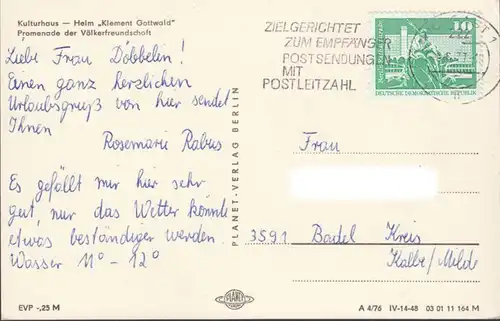 Kulturhaus — Heim „Klement Gottwald"
Promenade der Völkerfreundschaft
Liebe Frau Döbbelin!
Einen ganz herzlichen
Urlaubsgruß von hier sendet
Ihnen
Rosemarie Rabus
Es gefällt mir hier sehr
gut, nur das Wetter könnte
etwas beständiger werden.
Wasser 11° - 12°
EVP -,25 M
PLANET-VERLAG BERLIN
PLANET
ZIELGERICHTET
ZUM EMPFÄNGER
POSTSENDUNG
MIT
POSTLEITZAHL
10
DEUTSCHE DEMOKRATISCHE REPUBLIK
Frau
3591 Badel Kreis
Kalbe/Milde
A 4/76 IV-14-48 03 01 11 164 M